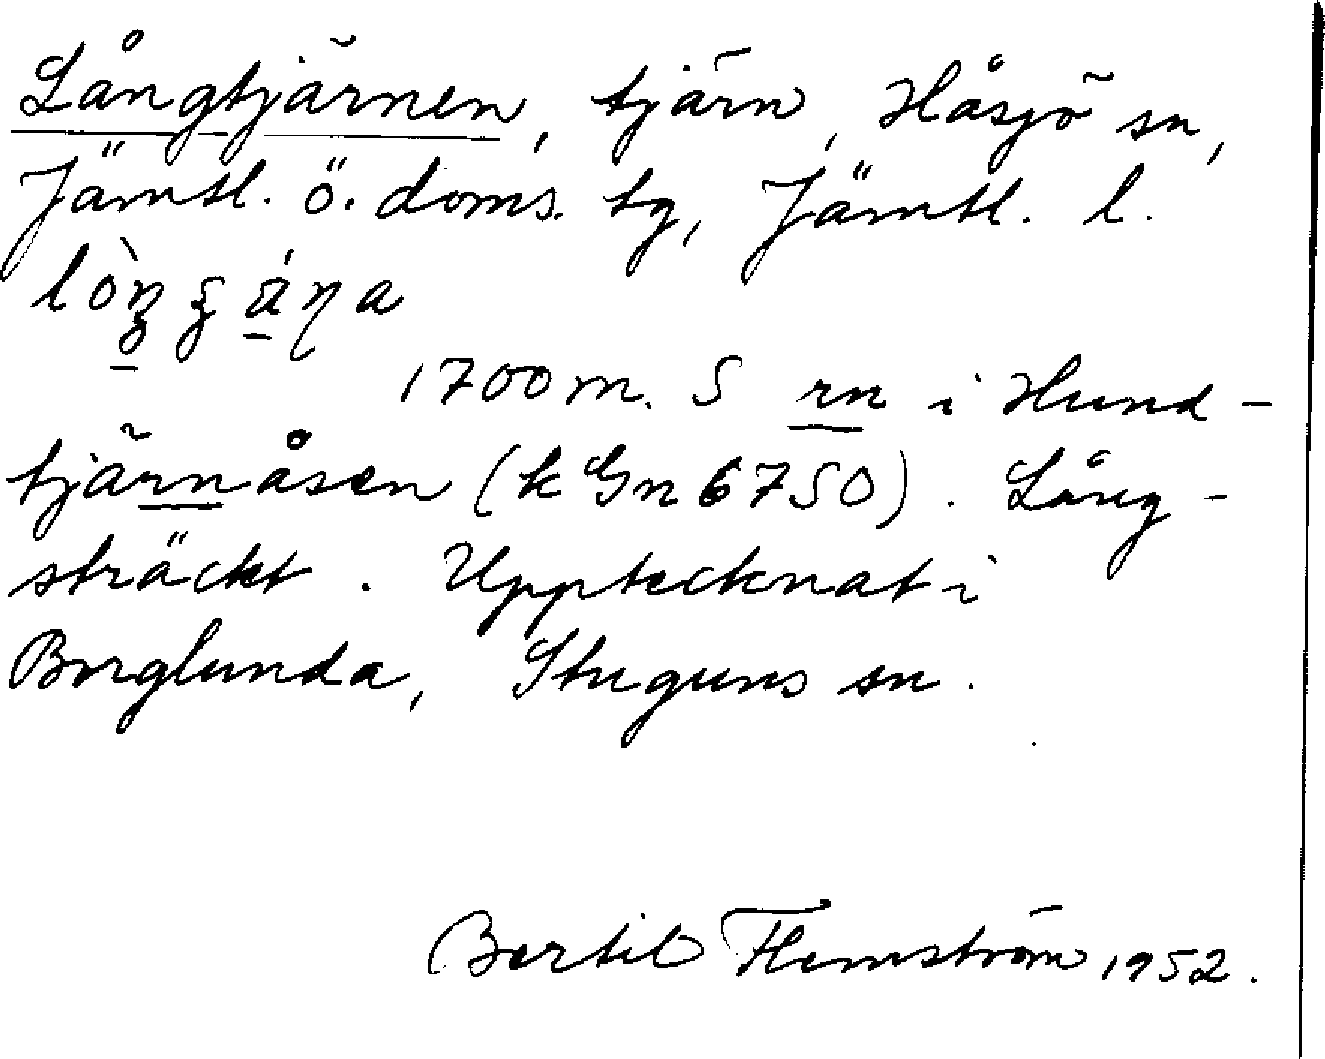 Långtjärnen, tjärn, Håsjö sn,
Jämtl. ö. doms. tg, Jämtl. l.
1700 m. S rn i Hund-
tjärnåsen (k Gn 6750). Lång-
sträckt. Upptecknat i
Borglunda, Stuguns sn.
Bertil Flemström 1952.